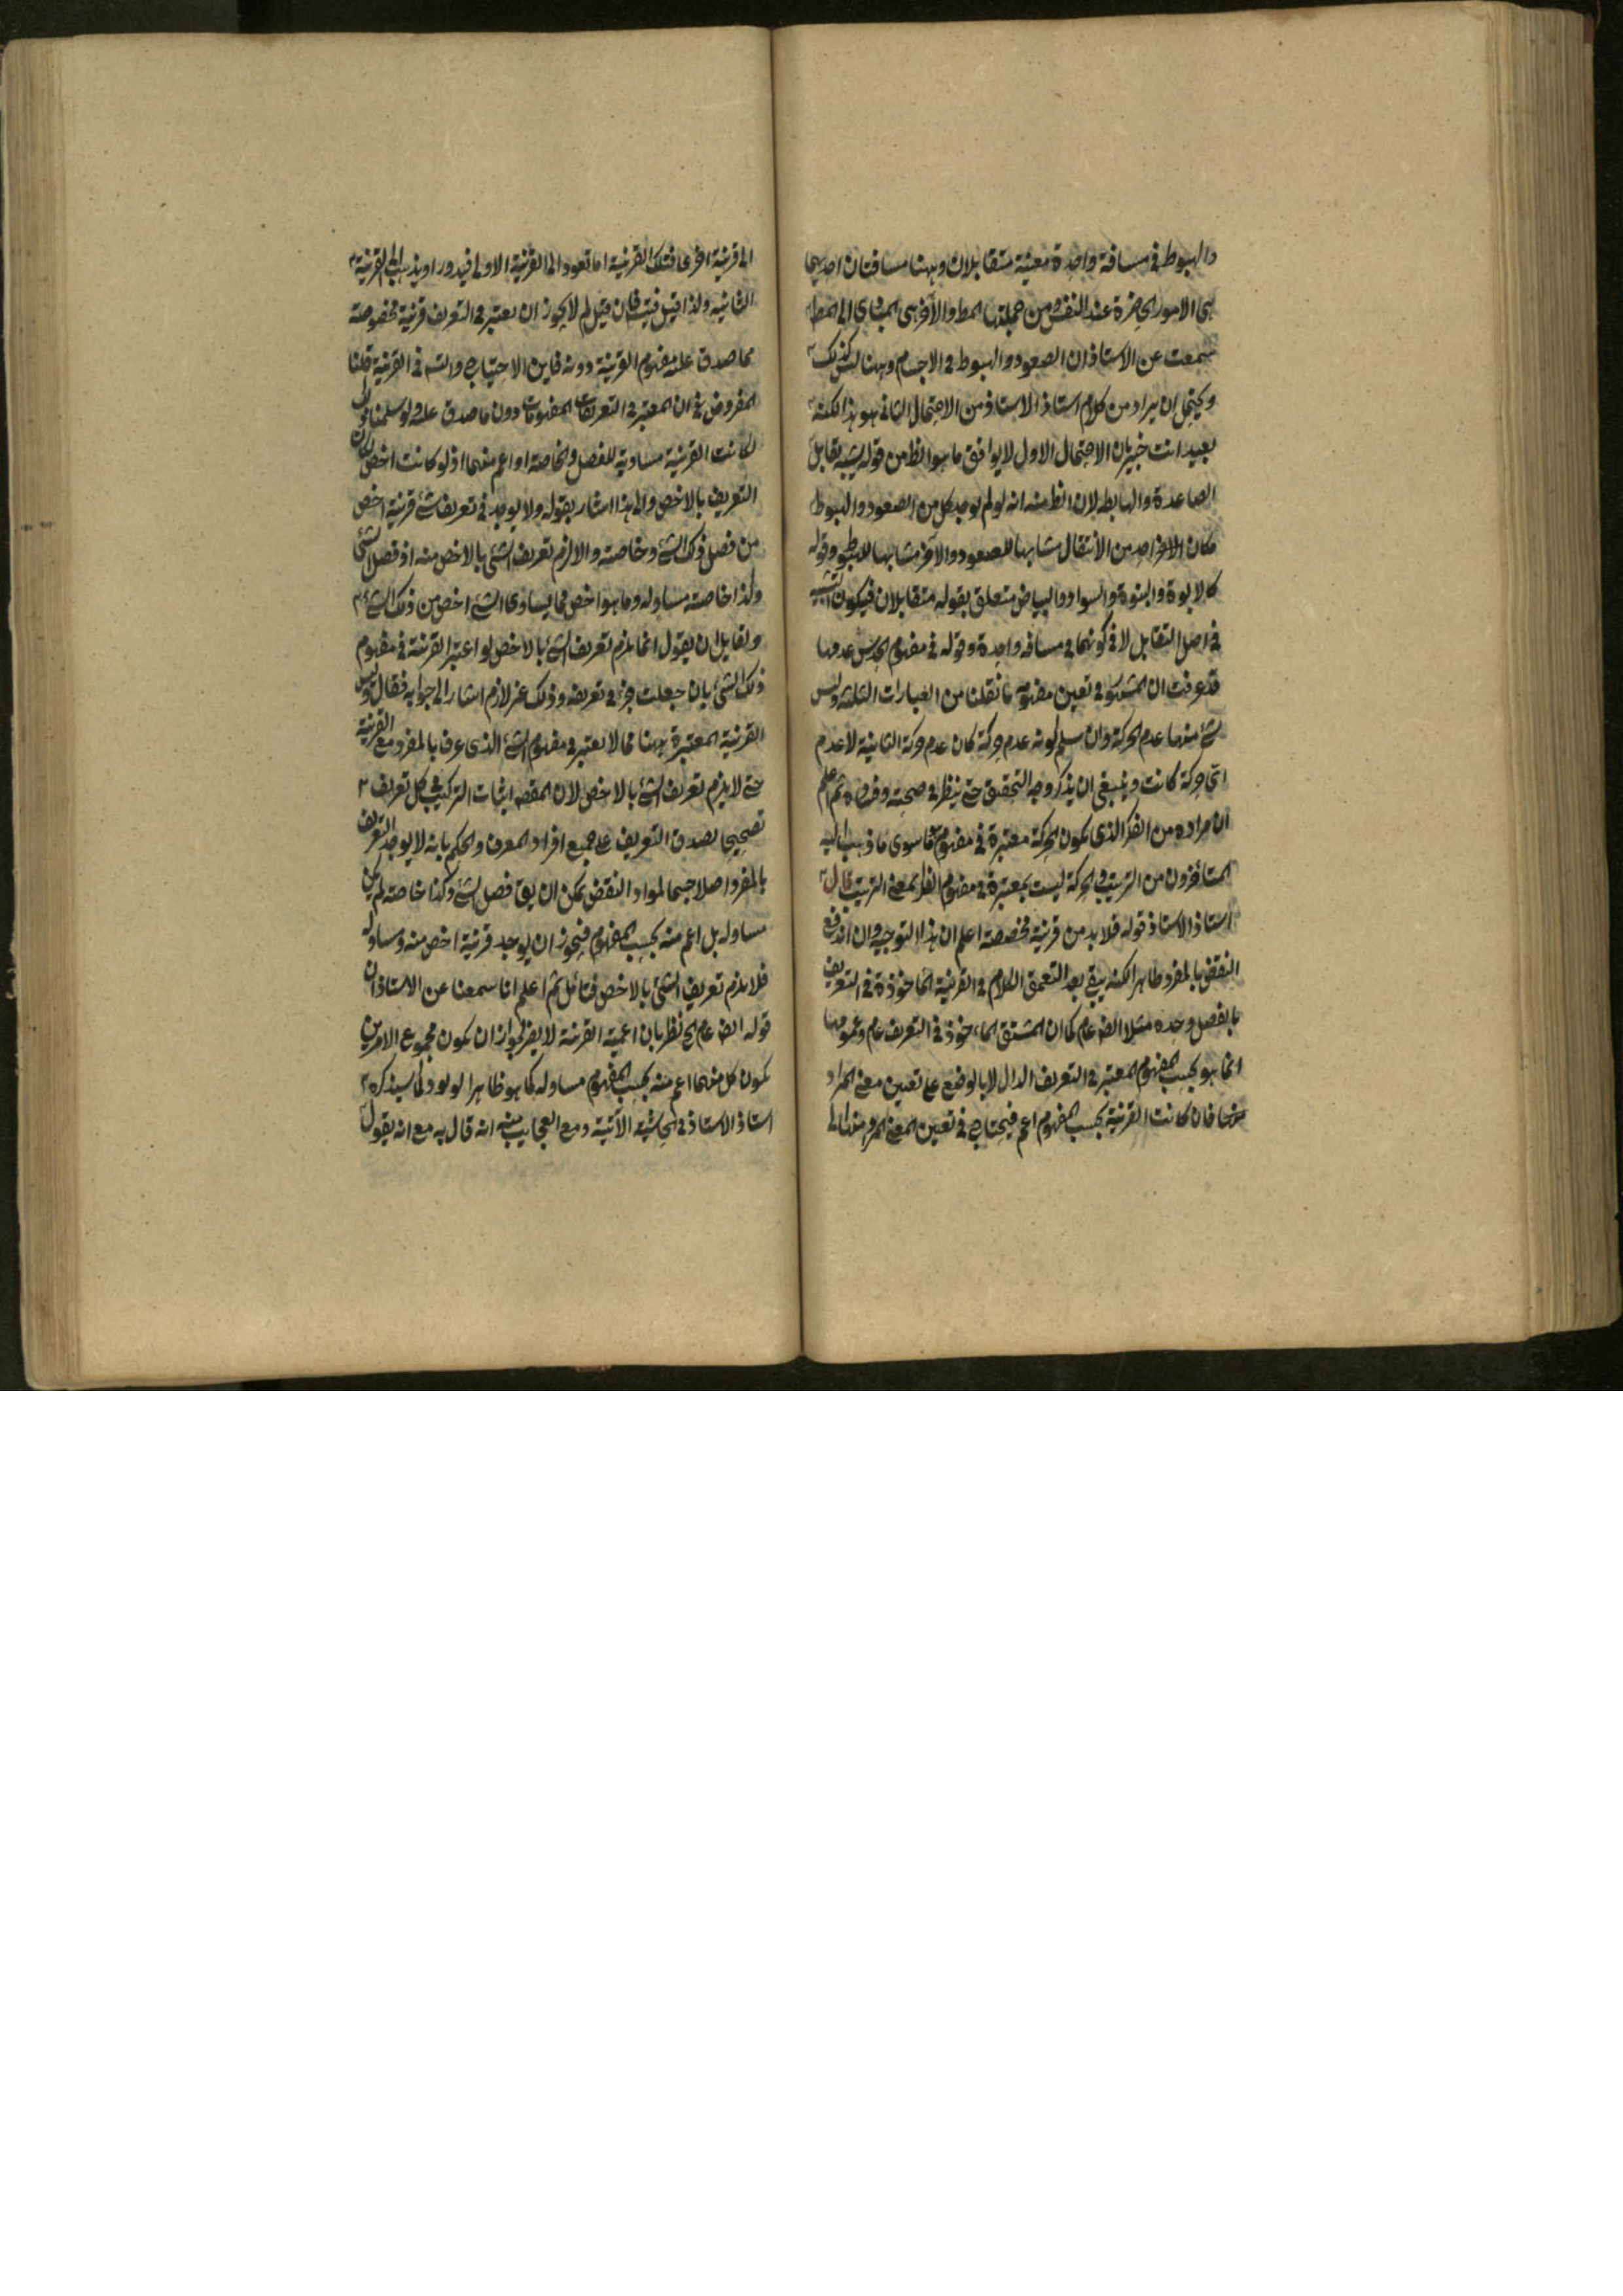 والهبوط في مسافة واحدة معينة متقابلان وههنا مسافتان احديهما
هي الامور الحاضرة عند النفس ومن جملتها المط والآخر هي المبادى الى المط
سمعت عن الاستاذ ان الصعود والهبوط في الاجسام وههنا ليس كذلك
ويحتمل ان يراد من كلام استاذ الاستاذ من الاحتمال الثاني هو هذا لكنه
بعيد انت خبير بان الاحتمال الاول لا يوافق ما هو الظ من قوله يشبه تقابل
الصاعدة والهابطة لان الظ منه انه لو لم يوجد كل من الصعود والهبوط
مكان الا واحد من الانتقال مشابها للصعود والآخر مشابها للهبوط وقوله
كالابوة والبنوة والسواد والبياض متعلق بقوله متقابلان فيكون التشبيه
في اصل التقابل لا في كونهما في مسافة واحدة وقوله في مفهوم الحدس عدمها
قد عرفت ان المشهور في تعيين مفهومه ما نقلنا من العبارات الثلثة وليس
شئ منها عدم الحركة وان سلم كونه عدم حركة كان عدم حركة الثانية لا عدم
اى حركة كانت وينبغي ان يذكر وجه التحقيق حتى ينظر في صحته وفساده ثم اعلم
ان مراده من الفكر الذى يكون الحركة معتبرة في مفهومه ما سوى ما ذهب اليه
المتأخرون من الترتيب والحركة ليست بمعتبرة في مفهوم الفكر بمعنى الترتيب قال
استاذ الاستاذ قوله فلا بد من قرينة مخصصة اعلم ان هذا التوجيه وان اندفع
النقض بالمفرد ظاهرا لكنه يبقى بعد التعمق الكلام في القرينة الماخوذة في التعريف
بالفصل وحده مثلا ايضا عام كما ان المشتق الماخوذ في التعريف عام وعمومها
انما هو بحسب المفهوم المعتبر في التعريف الدال لا بالوضع على تعيين معنى المراد
منها فان كانت القرينة بحسب المفهوم اعم فيحتاج في تعيين المعنى المراد منها الى
الى قرينة اخرى فتلك القرينة اما تعود الى القرينة الاولى فيدور او يذهب الى القرينة
الثانية ولذا قيل فيت فان قيل لم لا يجوز ان يعتبر في التعريف قرينة مخصوصة
مما صدق عليه مفهوم القرينة دونه فاين الاحتياج والتسه في القرينة قلنا
المفروض في ان المعتبر في التعريفات المفهومات دون ما صدق عليه ولو سلمنا
لكانت القرينة مساوية للفصل والخاصة او اعم منهما اذ لو كانت اخص لكان
التعريف بالاخص والى هذا اشار بقوله ولا يوجد في تعريف شئ قرينة اخص
من فصل ذلك الشئ وخاصته والا لزم تعريف الشئ بالاخص منه اذ فصل الشئ
وكذا خاصته مساو له وما هو اخص مما يساوى الشئ اخص من ذلك الشئ
ولقائل ان يقول انما يلزم تعريف الشئ بالاخص لو اعتبر القرينة في مفهوم
ذلك الشئ بان جعلت جزء تعريفه وذلك غير لازم اشار الى جوابه فقال وليس
القرينة المعتبرة ههنا مما لا يعتبر في مفهوم الشئ الذى عرف بالمفرد مع القرينة
حتى لا يلزم تعريف الشئ بالاخص لان المقصه اثبات التركيب في كل تعريف
تصحيحا لصدق التعريف على جميع افراد المعرف والحكم بانه لا يوجد التعريف
بالمفرد اصلا حسما لمواد النقض يمكن ان يق فصل الشئ وكذا خاصته لم يكن
مساو له بل اعم منه بحسب المفهوم فيجوز ان يوجد قرينة اخص منه ومساو له
فلا يلزم تعريف الشئ بالاخص فتأمل ثم اعلم انا سمعنا عن الاستاذ ان
قوله ايضا عام الخ نظر بان اعمية القرينة لا يضر لجواز ان يكون مجموع الامرين
يكون كل منهما اعم منه بحسب المفهوم مساو له كما هو ظاهر الولود كما سيذكره
استاذ الاستاذ في الحاشية الآتية ومع العجايب منه انه قال به مع انه يقول